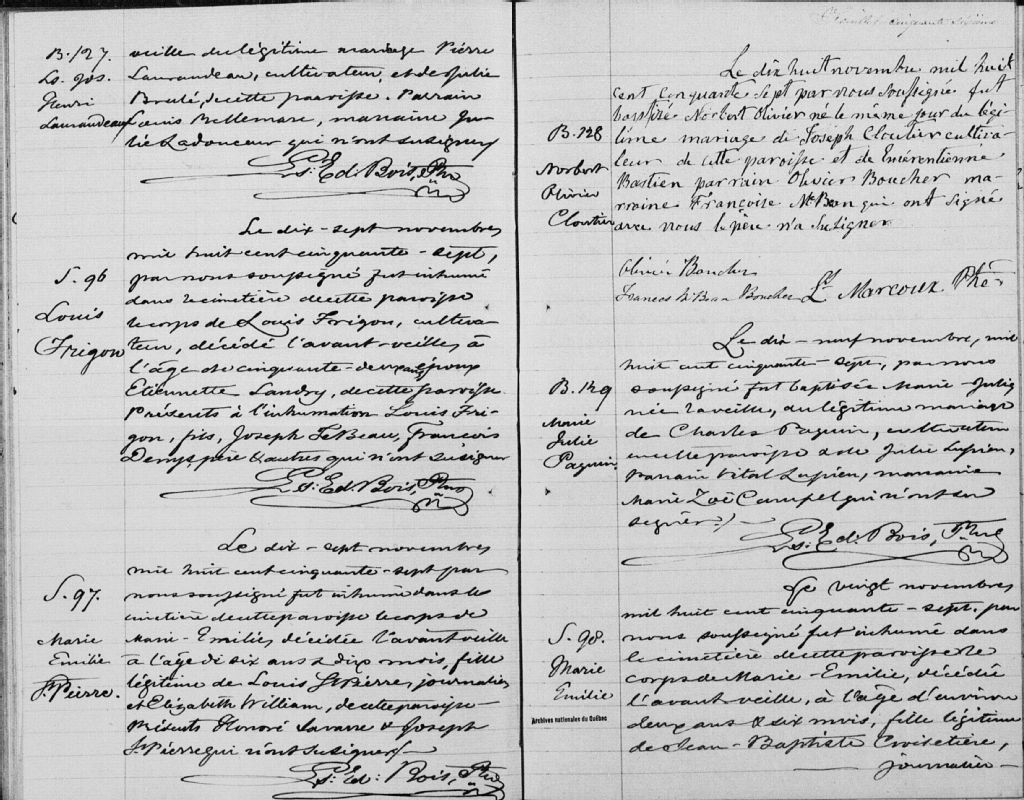 B. 127.
Ls. Jos.
Henri
Laurandeau
veille du légitime mariage Pierre
Laurandeau, cultivateur, et de Julie
Brulé, de cette paroisse. Parrain
Louis Bellemare, marraine Ju-
lie Ladouceur qui n'ont su signer
Ls. Ed. Bois, Ptre
S. 96
Louis
Frigon
Le dix-sept novembre
mil huit cent cinquante-sept,
par nous soussigné fut inhumé
dans le cimetière de cette paroisse
le corps de Louis Frigon, cultiva-
teur, décédé l'avant-veille, à
l'âge de cinquante-deux ans, époux
Etiennette Landry, de cette paroisse.
Présents à l'inhumation Louis Fri-
gon, fils, Joseph LeBeau, François
Denys père & autres qui n'ont su signer
Ls. Ed. Bois, Ptre
S. 97.
Marie
Emilie
St. Pierre.
Le dix-sept novembre
mil huit cent cinquante-sept par
nous soussigné fut inhumé dans le
cimetière de cette paroisse le corps de
Marie-Emilie, décédée l'avant veille
à l'âge de six ans & dix mois, fille
légitime de Louis St. Pierre, journalier
et Elizabeth William, de cette paroisse.
Présents Honoré Savare & Joseph
St. Pierre qui n'ont su signer
Ls. Ed. Bois, Ptre
cinquante
B. 128
Norbert
Olivier
Cloutier
Le dix huit novembre mil huit
cent cinquante sept par nous soussigné fut
baptisé Norbert Olivier né le même jour du légi-
time mariage de Joseph Cloutier cultiva-
teur de cette paroisse et de Emérentienne
Bastien parrain Olivier Boucher ma-
rraine Françoise McBean qui ont signé
avec nous le père n'a su signer
Olivier Boucher
Frances McBean Boucher Ls Marcoux Ptre
B. 129
Marie
Julie
Paquin
Le dix-neuf novembre, mil
huit cent cinquante-sept, par nous
soussigné fut baptisée Marie-Julie
née la veille, du légitime mariage
de Charles Paquin, cultivateur
en cette paroisse & de Julie Lupien,
parrain Vital Lupien, marraine
Marie Zoë qui n'ont su
signer.
Ls. Ed. Bois, Ptre
S. 98.
Marie
Emilie
Le vingt novembre
mil huit cent cinquante-sept, par
nous soussigné fut inhumé dans
le cimetière de cette paroisse le
corps de Marie-Emilie, décédé
l'avant-veille, à l'âge d'environ
deux ans & six mois, fille légitime
de Jean-Baptiste Croisetière,
journalier
Archives nationales du Québec